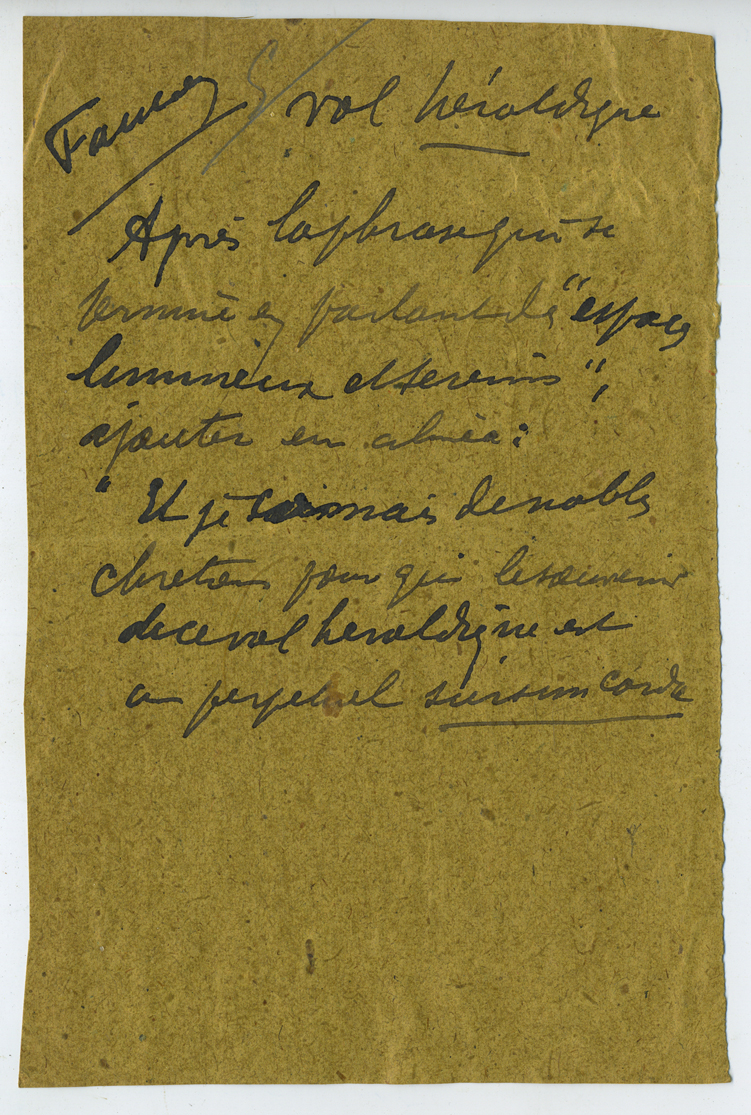 vol héraldique
Après la phrase qui se
termine en parlant de "espaces
lumineux et sereins",
ajouter en alinéa:
" Et je sais mais de nobles
chretiens pour qui le souvenir
de ce vol heraldique est
un perpetuel sursum corda